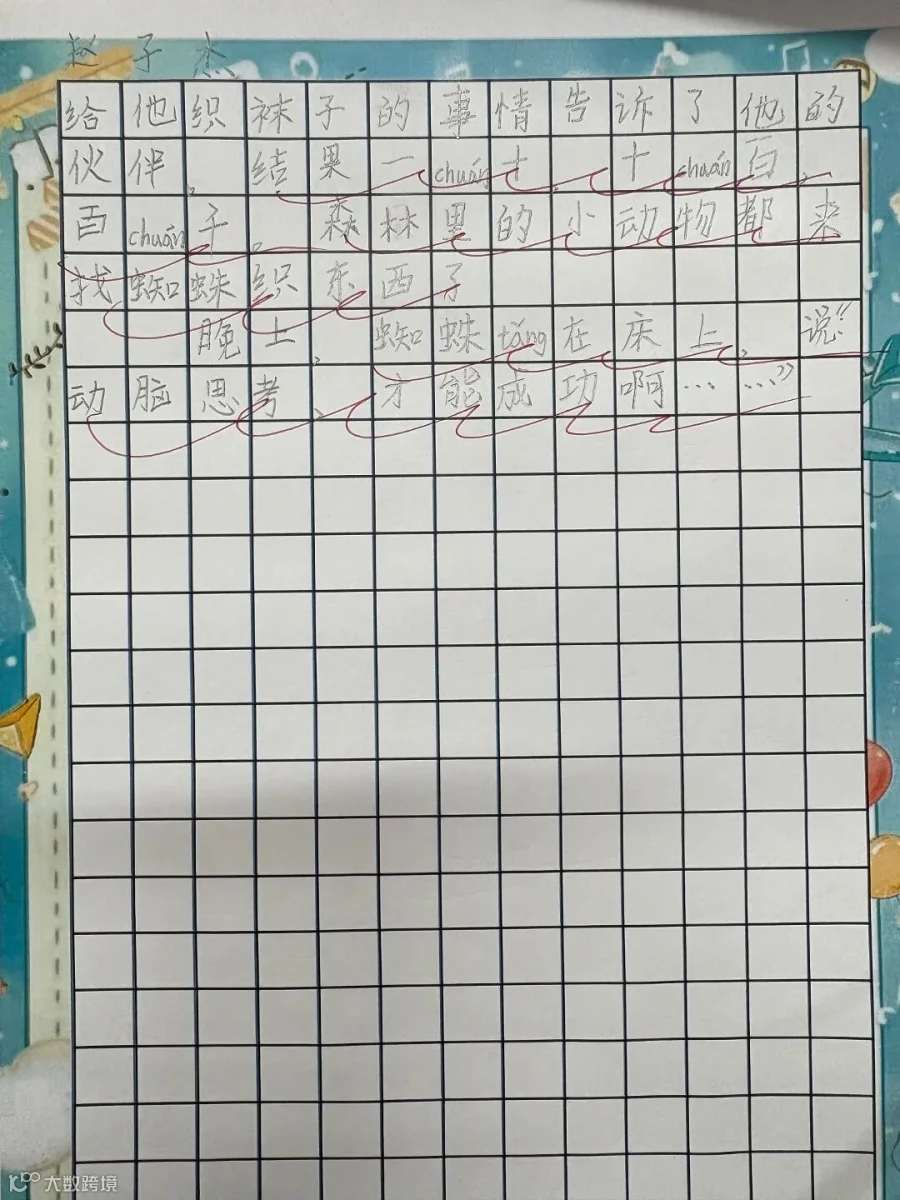 赵子杰
给他织袜子的事情告诉了他的
伙伴，结果一chuán十，十chuán百，
百chuán千。森林里的小动物都来
找蜘蛛织东西了
晚上，蜘蛛tǎng在床上，说“
动脑思考，才能成功啊……”
大数跨境